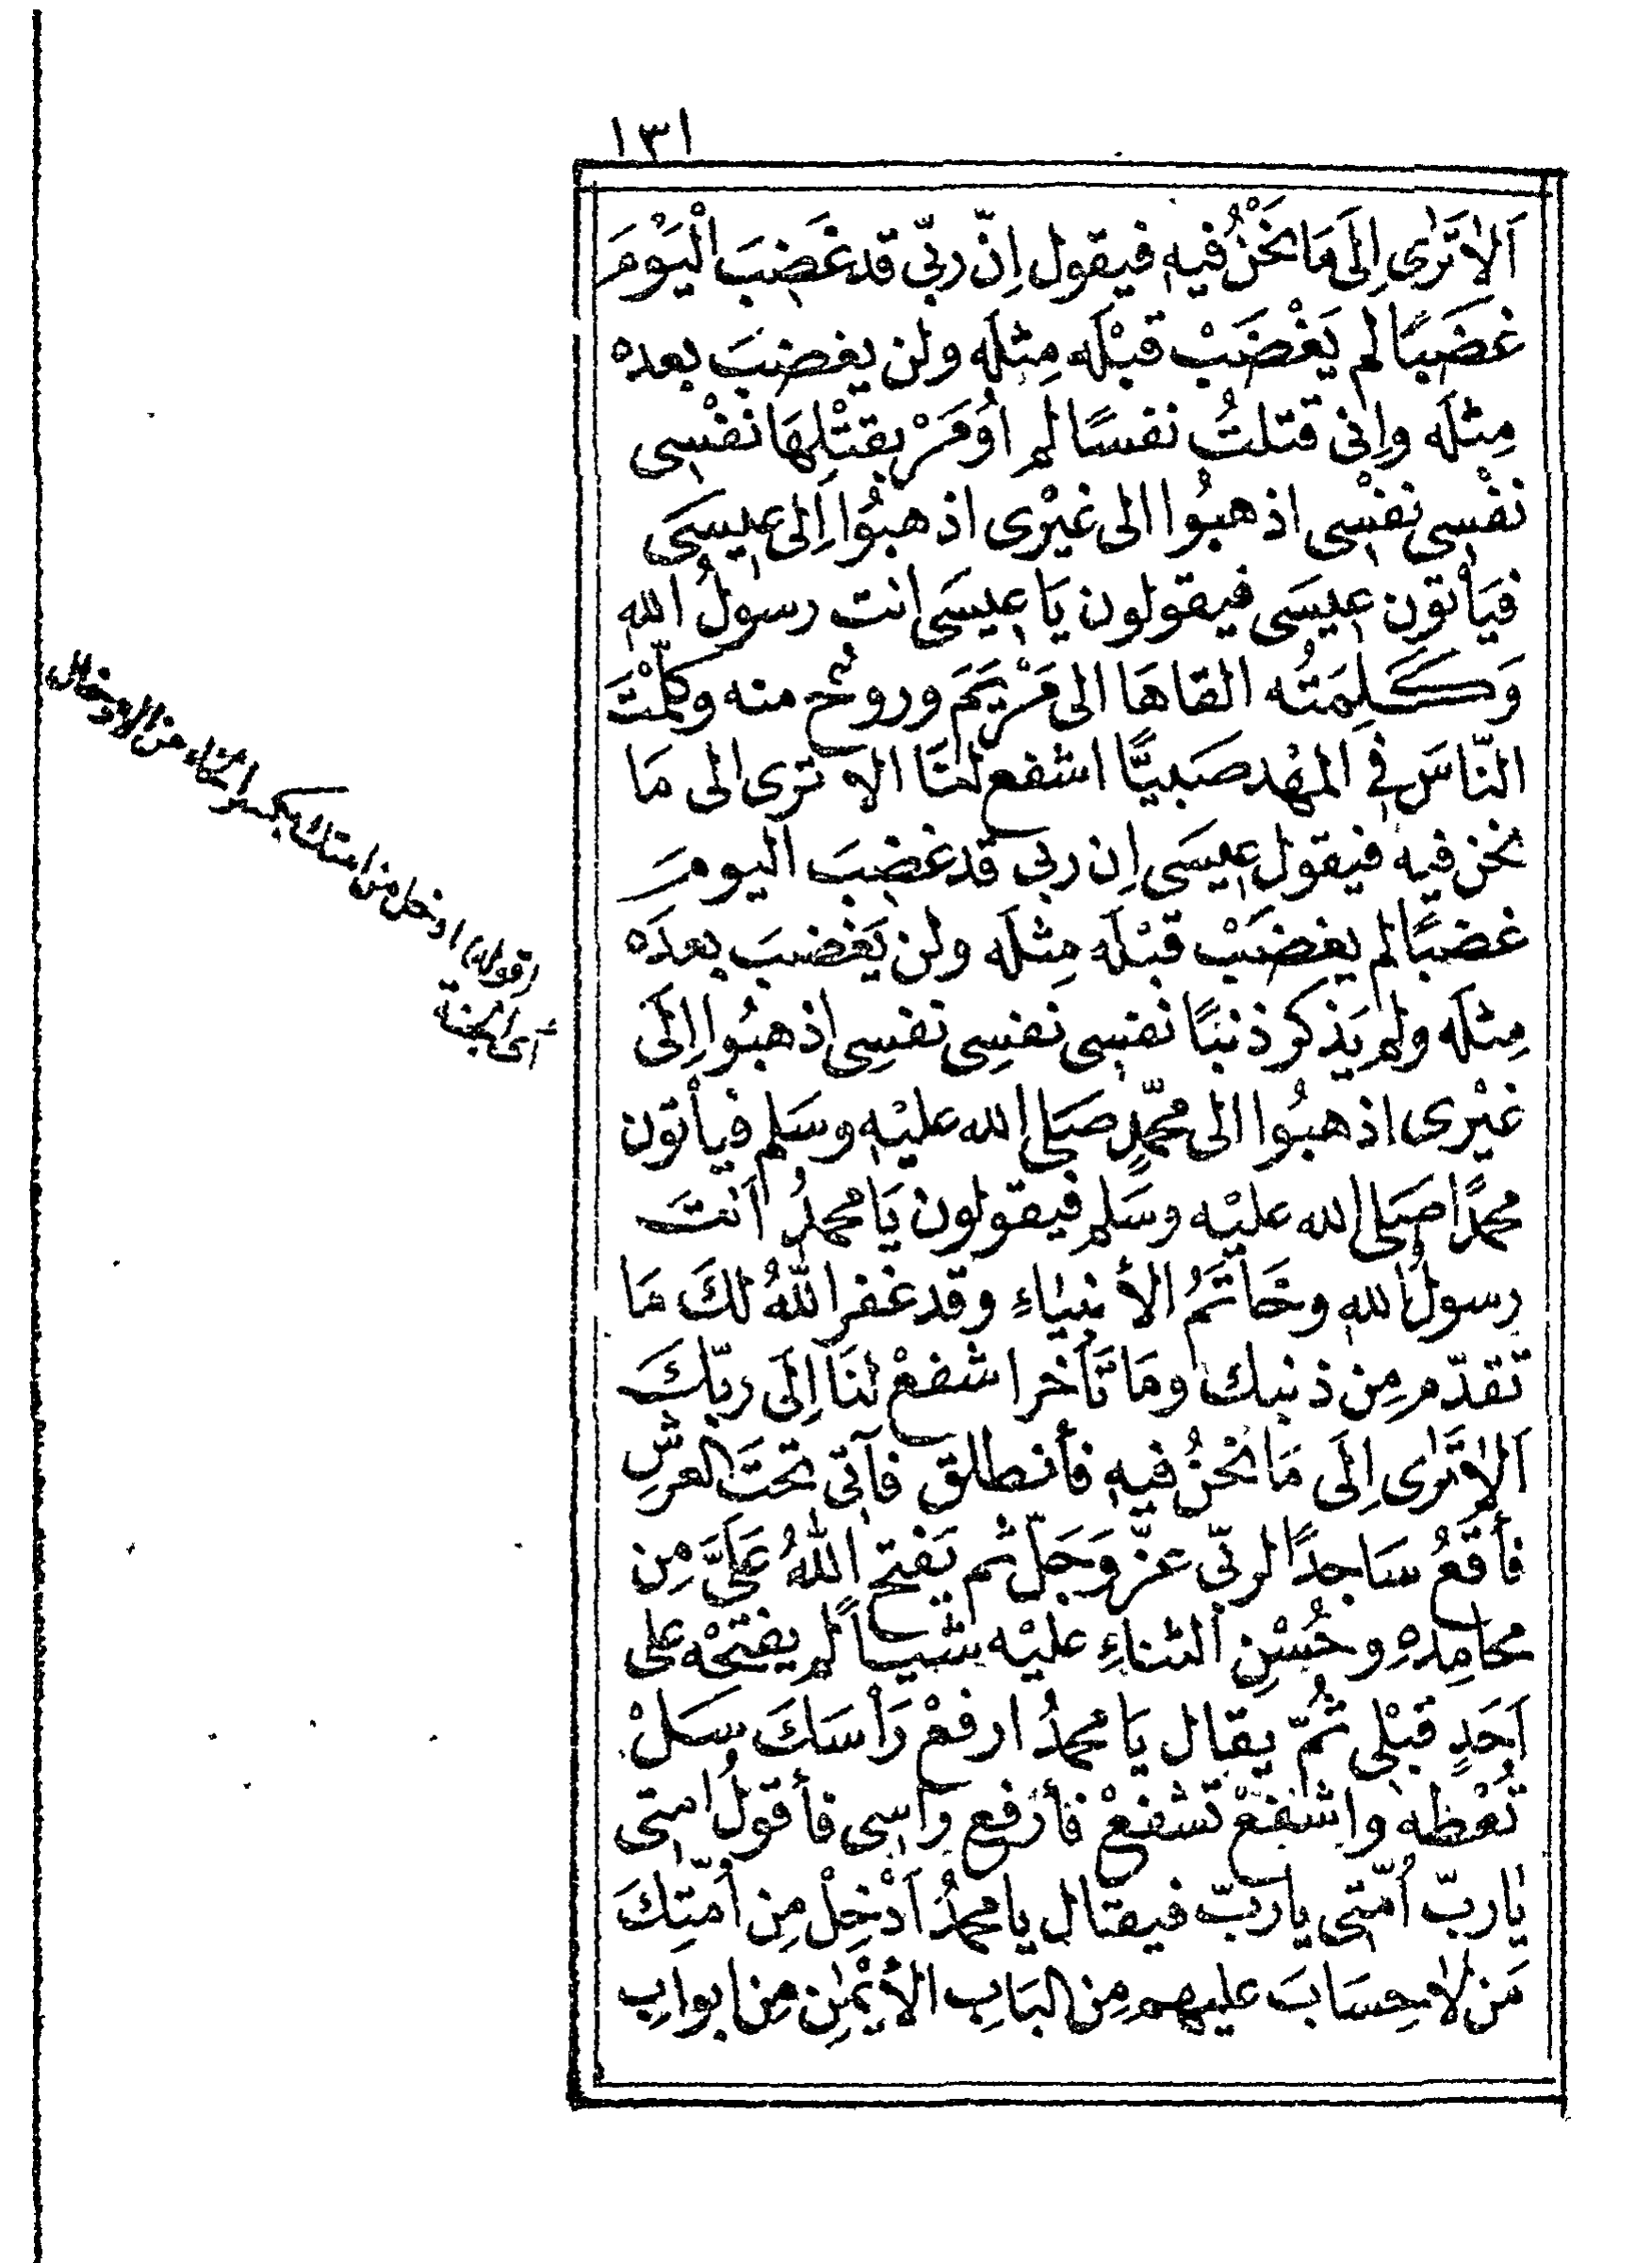 ١٣١
اَلاٰتَرٰى اِلَى مَا نَحْنُ فيهِ فيقول اِنّ ربّى قد غَضِبَ الْيَوْمَ
غضَبًا لم يَغْضَبْ قبْلَه مِثلَه ولن يغضِبَ بعده
مِثلَه واِنى قتلتُ نفسًا لم اُومَرْ بقتْلِهَا نفْسِى
نفْسِى نفْسِى اذهبُوا الى غيْرى اذهبُوا اِلى عِيسَى
فيَأتون عِيسَى فيقولون يَا عِيسَى انت رسولُ اللهِ
وَكَلِمَتُه القاهَا الى مَرْيَمَ وروحٌ منه وكلّمْتَ
النّاسَ فِى المهْد صَبيًّا اشفع لنَا الاٰ ترى الى مَا
نحن فيه فيقول عِيسَى اِن ربى قد غضِبَ اليومَ
غضبًا لم يغضَبْ قبْلَه مِثلَه ولن يَغْضبَ بعدَه
مِثلَه ولم يَذكر ذنبًا نفسِى نفسِى نفسِى اذهبُوا اِلَى
غيْرى اذهبُوا الى محمّدٍ صَلى الله عليْهِ وسَلم فيأتون
محمدًا صَلى الله عليْه وسَلم فيقولون يَا محمدُ اَنتَ
رسولُ اللهِ وخَاتَمُ الأنبيَاءِ وقد غفر اللهُ لكَ مَا
تقدّم مِن ذنبك ومَا تَأخر اشفعْ لنَا اِلَى ربّكَ
اَلاٰتَرٰى اِلَى مَا نحْنُ فيهِ فأنطلق فآتِى تحتَ العرشِ
فأقَعُ سَاجدًا لربّى عزّ وَجَلّ ثم يَفتح اللهُ عَلَىَّ مِن
محامِدهِ وحُسْنِ الثناءِ عليْه شيأً لم يفتحْه على
اَحَدٍ قبْلِى ثُمّ يقال يَا محمدُ ارفعْ رَأسَكَ سَلْ
تُعْطه واشفعْ تشفعْ فأرفع رَاسِى فأقولُ امتى
يٰاربّ اُمّتى ياربّ فيقال يا محمدُ اَدْخِلْ مِن اُمّتِكَ
مَن لاٰ حِسَابَ عليهم مِن البَابِ الأيْمَنِ مِن ابوابِ
(قوله) ادخل من امتك بكسر الخاء من الادخال
أى الجنة